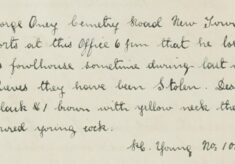 orge Oney Cemetry Road New Town
orts at this Office 6 pm that he lo
fowlhouse sometime during last
ieves they have been Stolen. Des
lack & 1 brown with yellow neck the
ured young cock.
Young No. 10